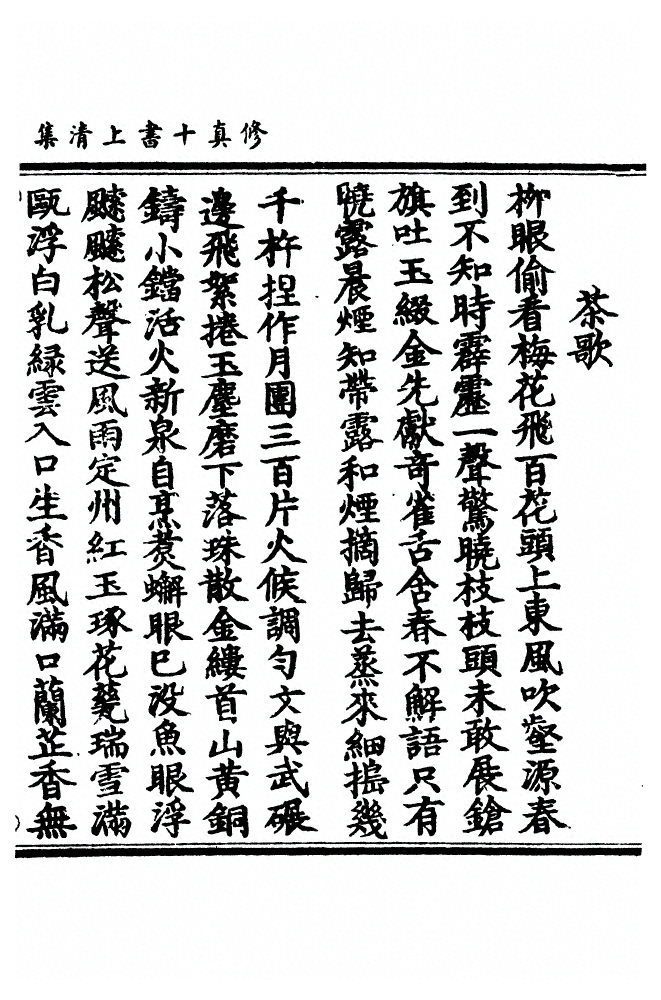 修真十書上清集
茶歌
栁眼偷看梅花飛百花頭上東風吹壑源春
到不知時霹靂一聲驚曉枝枝頭未敢展鎗
旗吐玉綴金先獻竒雀舌含春不解語只有
曉露晨煙知帶露和煙摘歸去蒸來細搗幾
千杵捏作月團三百片火候調勻文與武碾
邊飛絮捲玉塵磨下落珠散金縷首山黃銅
鑄小鐺活火新泉自烹煑蠏眼已没魚眼浮
颼颼松聲送風雨定州紅玉琢花甆瑞雪滿
甌浮白乳緑雲入口生香風滿口蘭芷香無